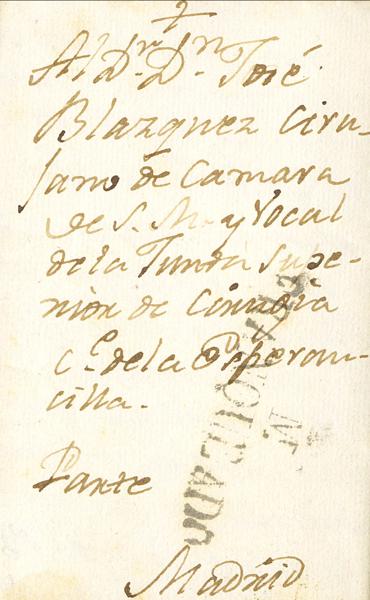 Al D.r D.n José
Blazquez Ciru-
jano de Camara
de S. M. y Vocal
de la Junta Supe-
rior de Cirugia
C.e de la
cilla.
Parte
Madrid
FRANQUEADO